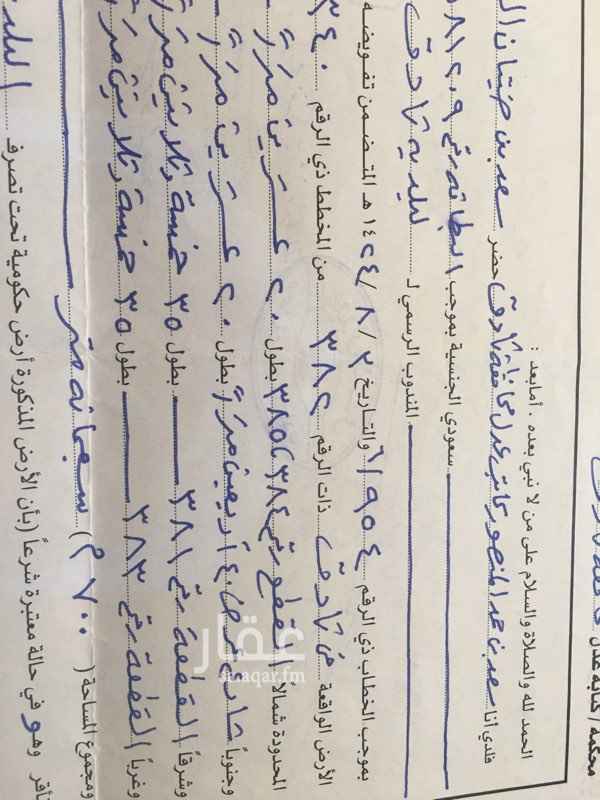 محكمة / كتابة عدل
الحمد لله والصلاة والسلام على من لا نبي بعده . أما بعد :
فلدي أنا سعد بن حمد المنصور كاتب عدل محافظة ثادق حضر سعد بن
سعودي الجنسية بموجب البطاقة رقم
المندوب الرسمي لـ بلدية ثادق
بموجب الخطاب ذي الرقم ٦١٩٥٤ والتاريخ ٢ / ٨ / ١٤٢٤ هـ المتضمن تفويضه
الأرض الواقعة في ثادق ذات الرقم ٣٨٢ من المخطط ذي الرقم ٣٤٠
المحدودة شمالاً القطع رقم ٣٨٤ و ٣٨٥ بطول ٢٠ عشرين متراً
وجنوباً شارع عرض ٤٠ أربعين متراً بطول ٢٠ عشرين متراً
وشرقاً القطعة رقم ٣٨١ بطول ٣٥ خمسة وثلاثين متراً
وغرباً القطعة رقم ٣٨٣ بطول ٣٥ خمسة وثلاثين متراً
ومجموع المساحة ( ٧٠٠ م ) سبعمائة متر
وهو في حالة معتبرة شرعاً ( بأن الأرض المذكورة أرض حكومية تحت تصرف البلدية
عقار
aqar.fm